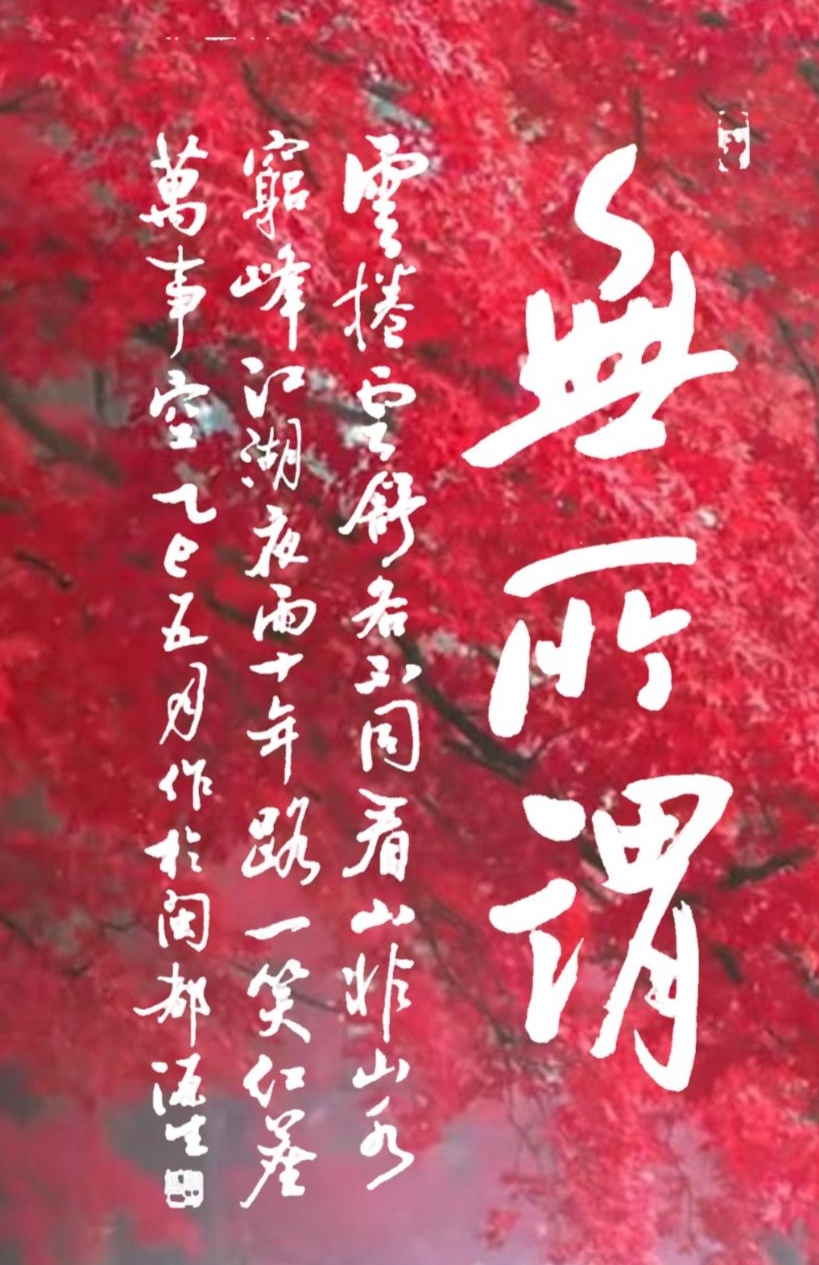 無所謂
雲捲雲舒各不同看山非山水
窮峰江湖夜雨十年路一笑紅塵
萬事空乙巳五月作於閩都